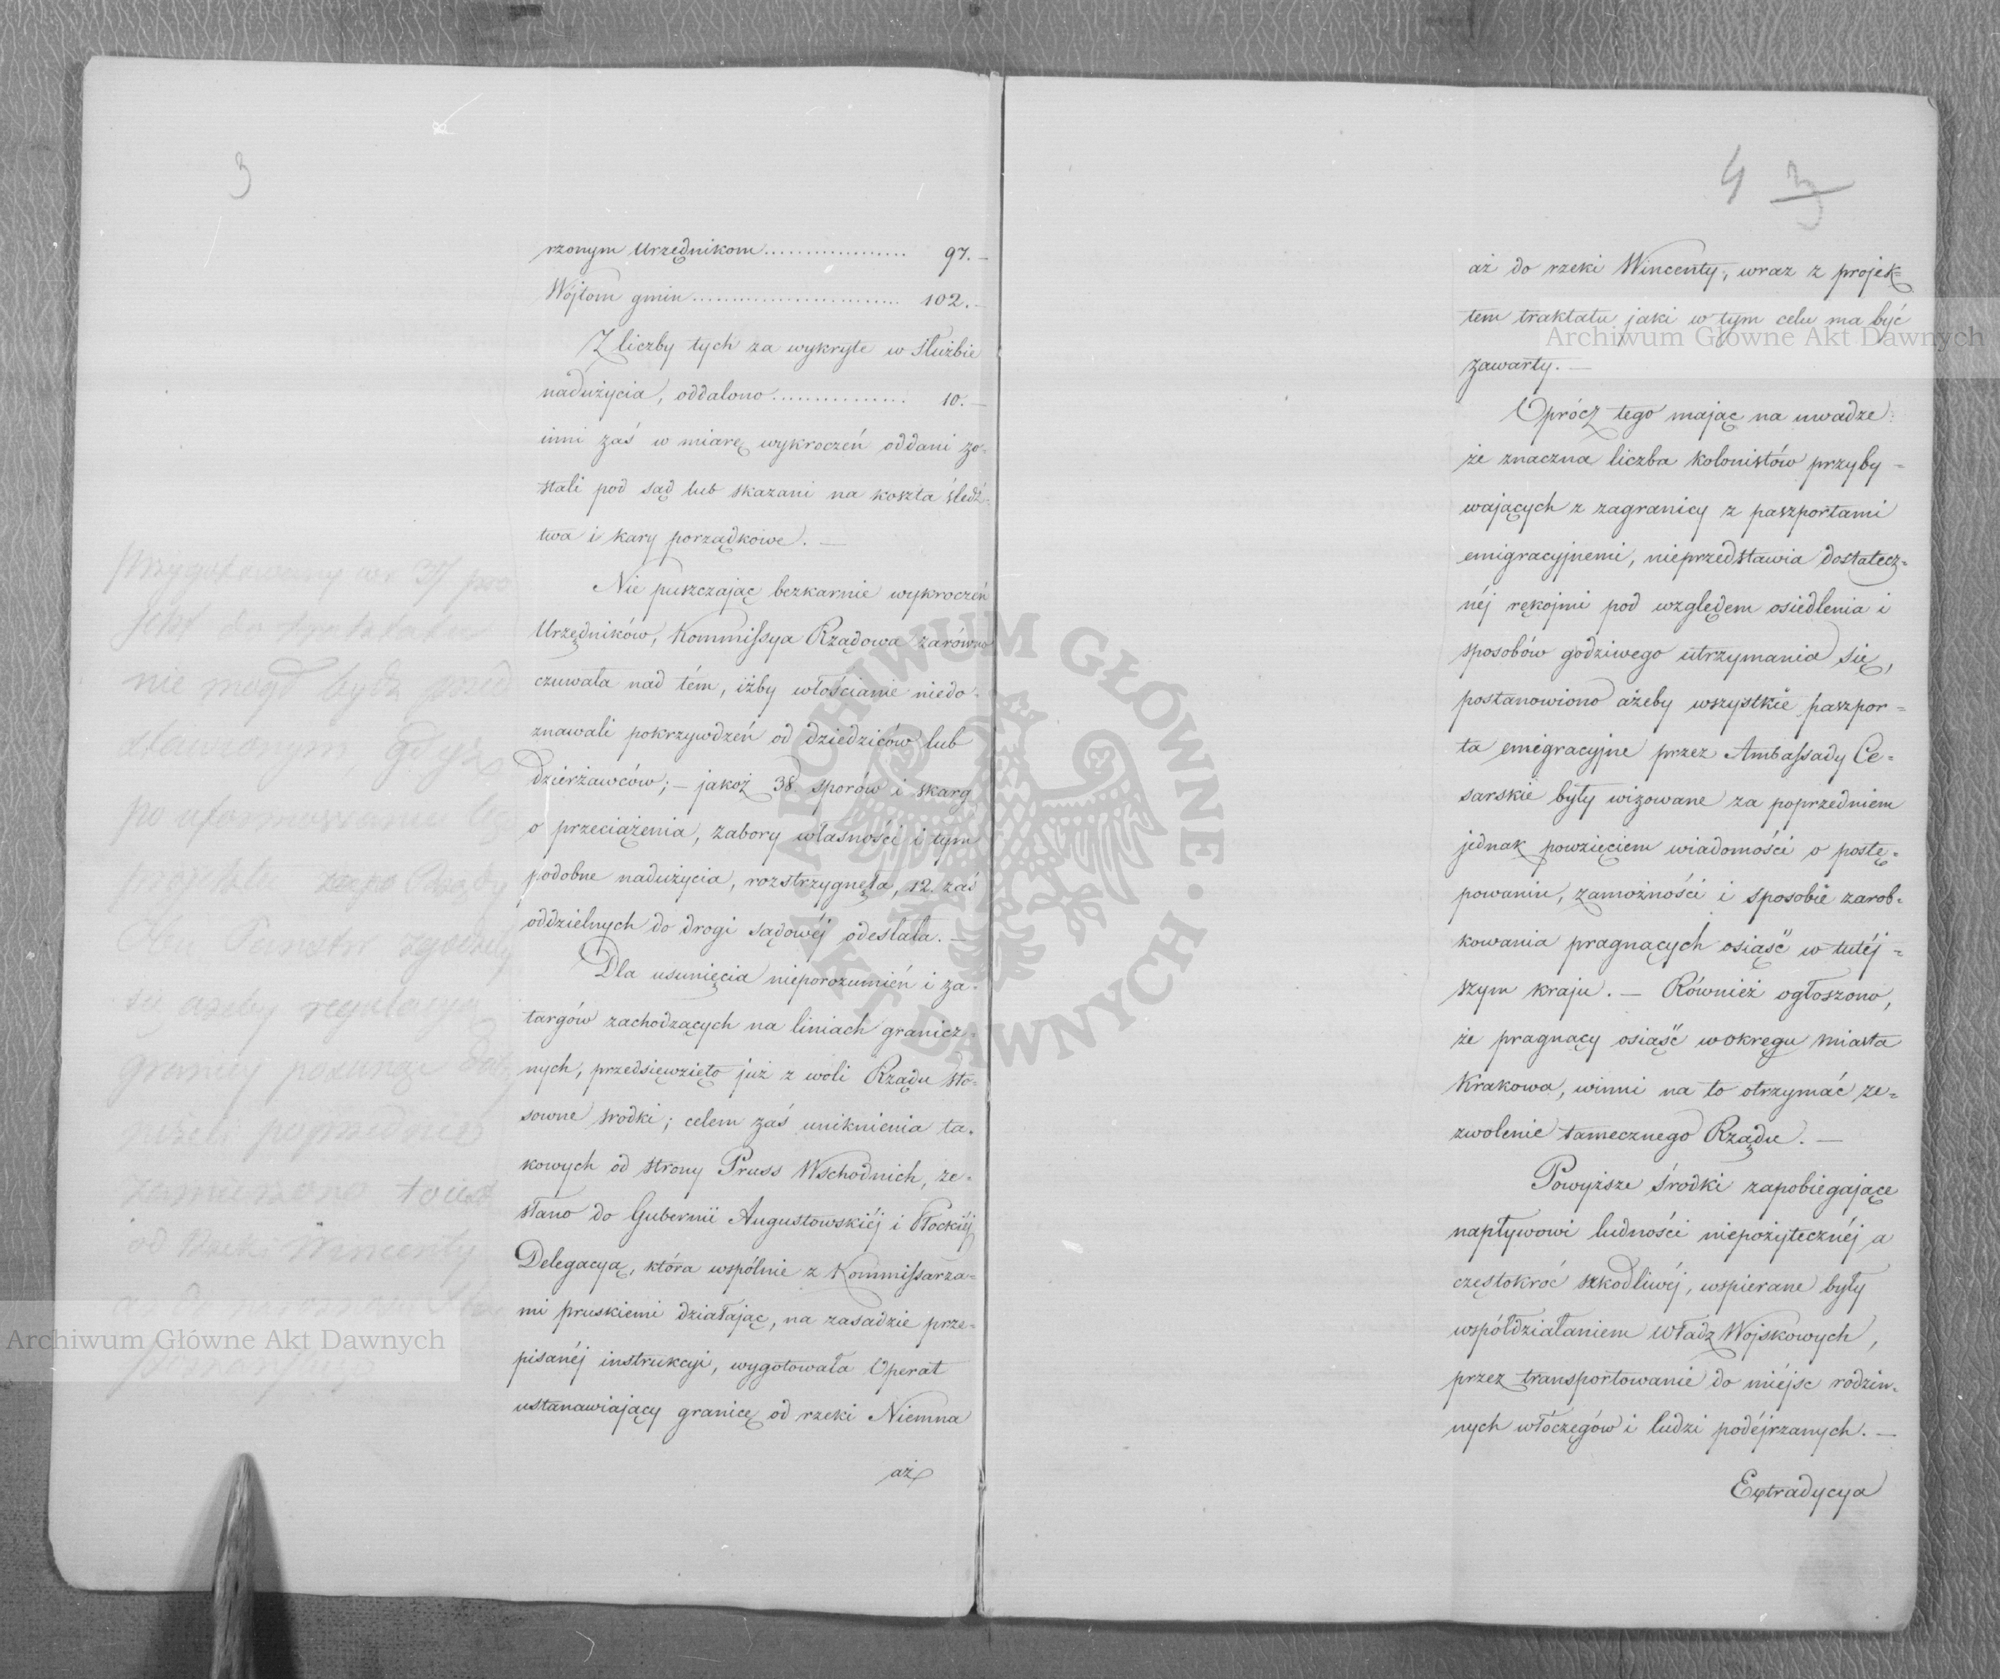 3
rzonym Urzędnikom.................. 97.—
Wójtom gmin......................... 102.—
Z liczby tych za wykryte w służbie
nadużycia, oddalono................ 10.—
inni zaś w miarę wykroczeń oddani zo-
stali pod sąd lub skazani na koszta śledź-
twa i kary porządkowe. —
Nie puszczając bezkarnie wykroczeń
Urzędników, Kommissya Rządowa zarówno
czuwała nad tém, iżby włościanie niedo-
znawali pokrzywdzeń od dziedziców lub
dzierżawców; — jakoż 38 sporów i skarg
o przeciążenia, zabory własności i tym
podobne nadużycia, rozstrzygnęła, 12. zaś
oddzielnych do drogi sądowéj odesłała. —
Dla usunięcia nieporozumień i za-
targów zachodzących na liniach granicz-
nych, przedsięwzięto już z woli Rządu sto-
sowne srodki; celem zaś uniknienia ta-
kowych od strony Pruss Wschodnich, ze-
słano do Gubernii Augustowskiéj i Płockiéj
Delegacyą, która wspólnie z Kommissarza-
mi pruskiemi działając, na zasadzie prze-
pisanéj instrukcyi, wygotowała Operat
ustanawiający granicę od rzeki Niemna
aż
Przygotowany pro
jekt do traktatu
nie mógł bydź przed
stawionym gdyż
po uformowaniu
projektu Rządy
Państw zgodziły
się ażeby regulacya
granicy
poprzednio
zamierzono
od Rzeki Wincenty
4 3
aż do rzeki Wincenty, wraz z projek-
tem traktatu jaki w tym celu ma być
zawarty. —
Oprócz tego mając na uwadze:
że znaczna liczba kolonistów przyby-
wających z zagranicy z paszportami
emigracyjnemi, nieprzedstawia dostatecz-
néj rękojmi pod względem osiedlenia i
sposobów godziwego utrzymania się,
postanowiono ażeby wszystkie paszpor-
ta emigracyjne przez Ambassady Ce-
sarskie były wizowane za poprzedniem
jednak powzięciem wiadomości o postę-
powaniu, zamożności i sposobie zarob-
kowania pragnących osiąść w tutéj-
szym kraju. — Również ogłoszono,
że pragnący osiąść w okręgu miasta
Krakowa, winni na to otrzymać ze-
zwolenie tamecznego Rządu. —
Powyższe środki zapobiegające
napływowi ludności niepożytecznéj a
częstokroć szkodliwéj, wspierane były
współdziałaniem Władz Wojskowych,
przez transportowanie do miéjsc rodzin-
nych włóczęgów i ludzi podéjrzanych. —
Extradycya
Archiwum Główne Akt Dawnych
Archiwum Główne Akt Dawnych
ARCHIWUM GŁÓWNE · AKT DAWNYCH ·